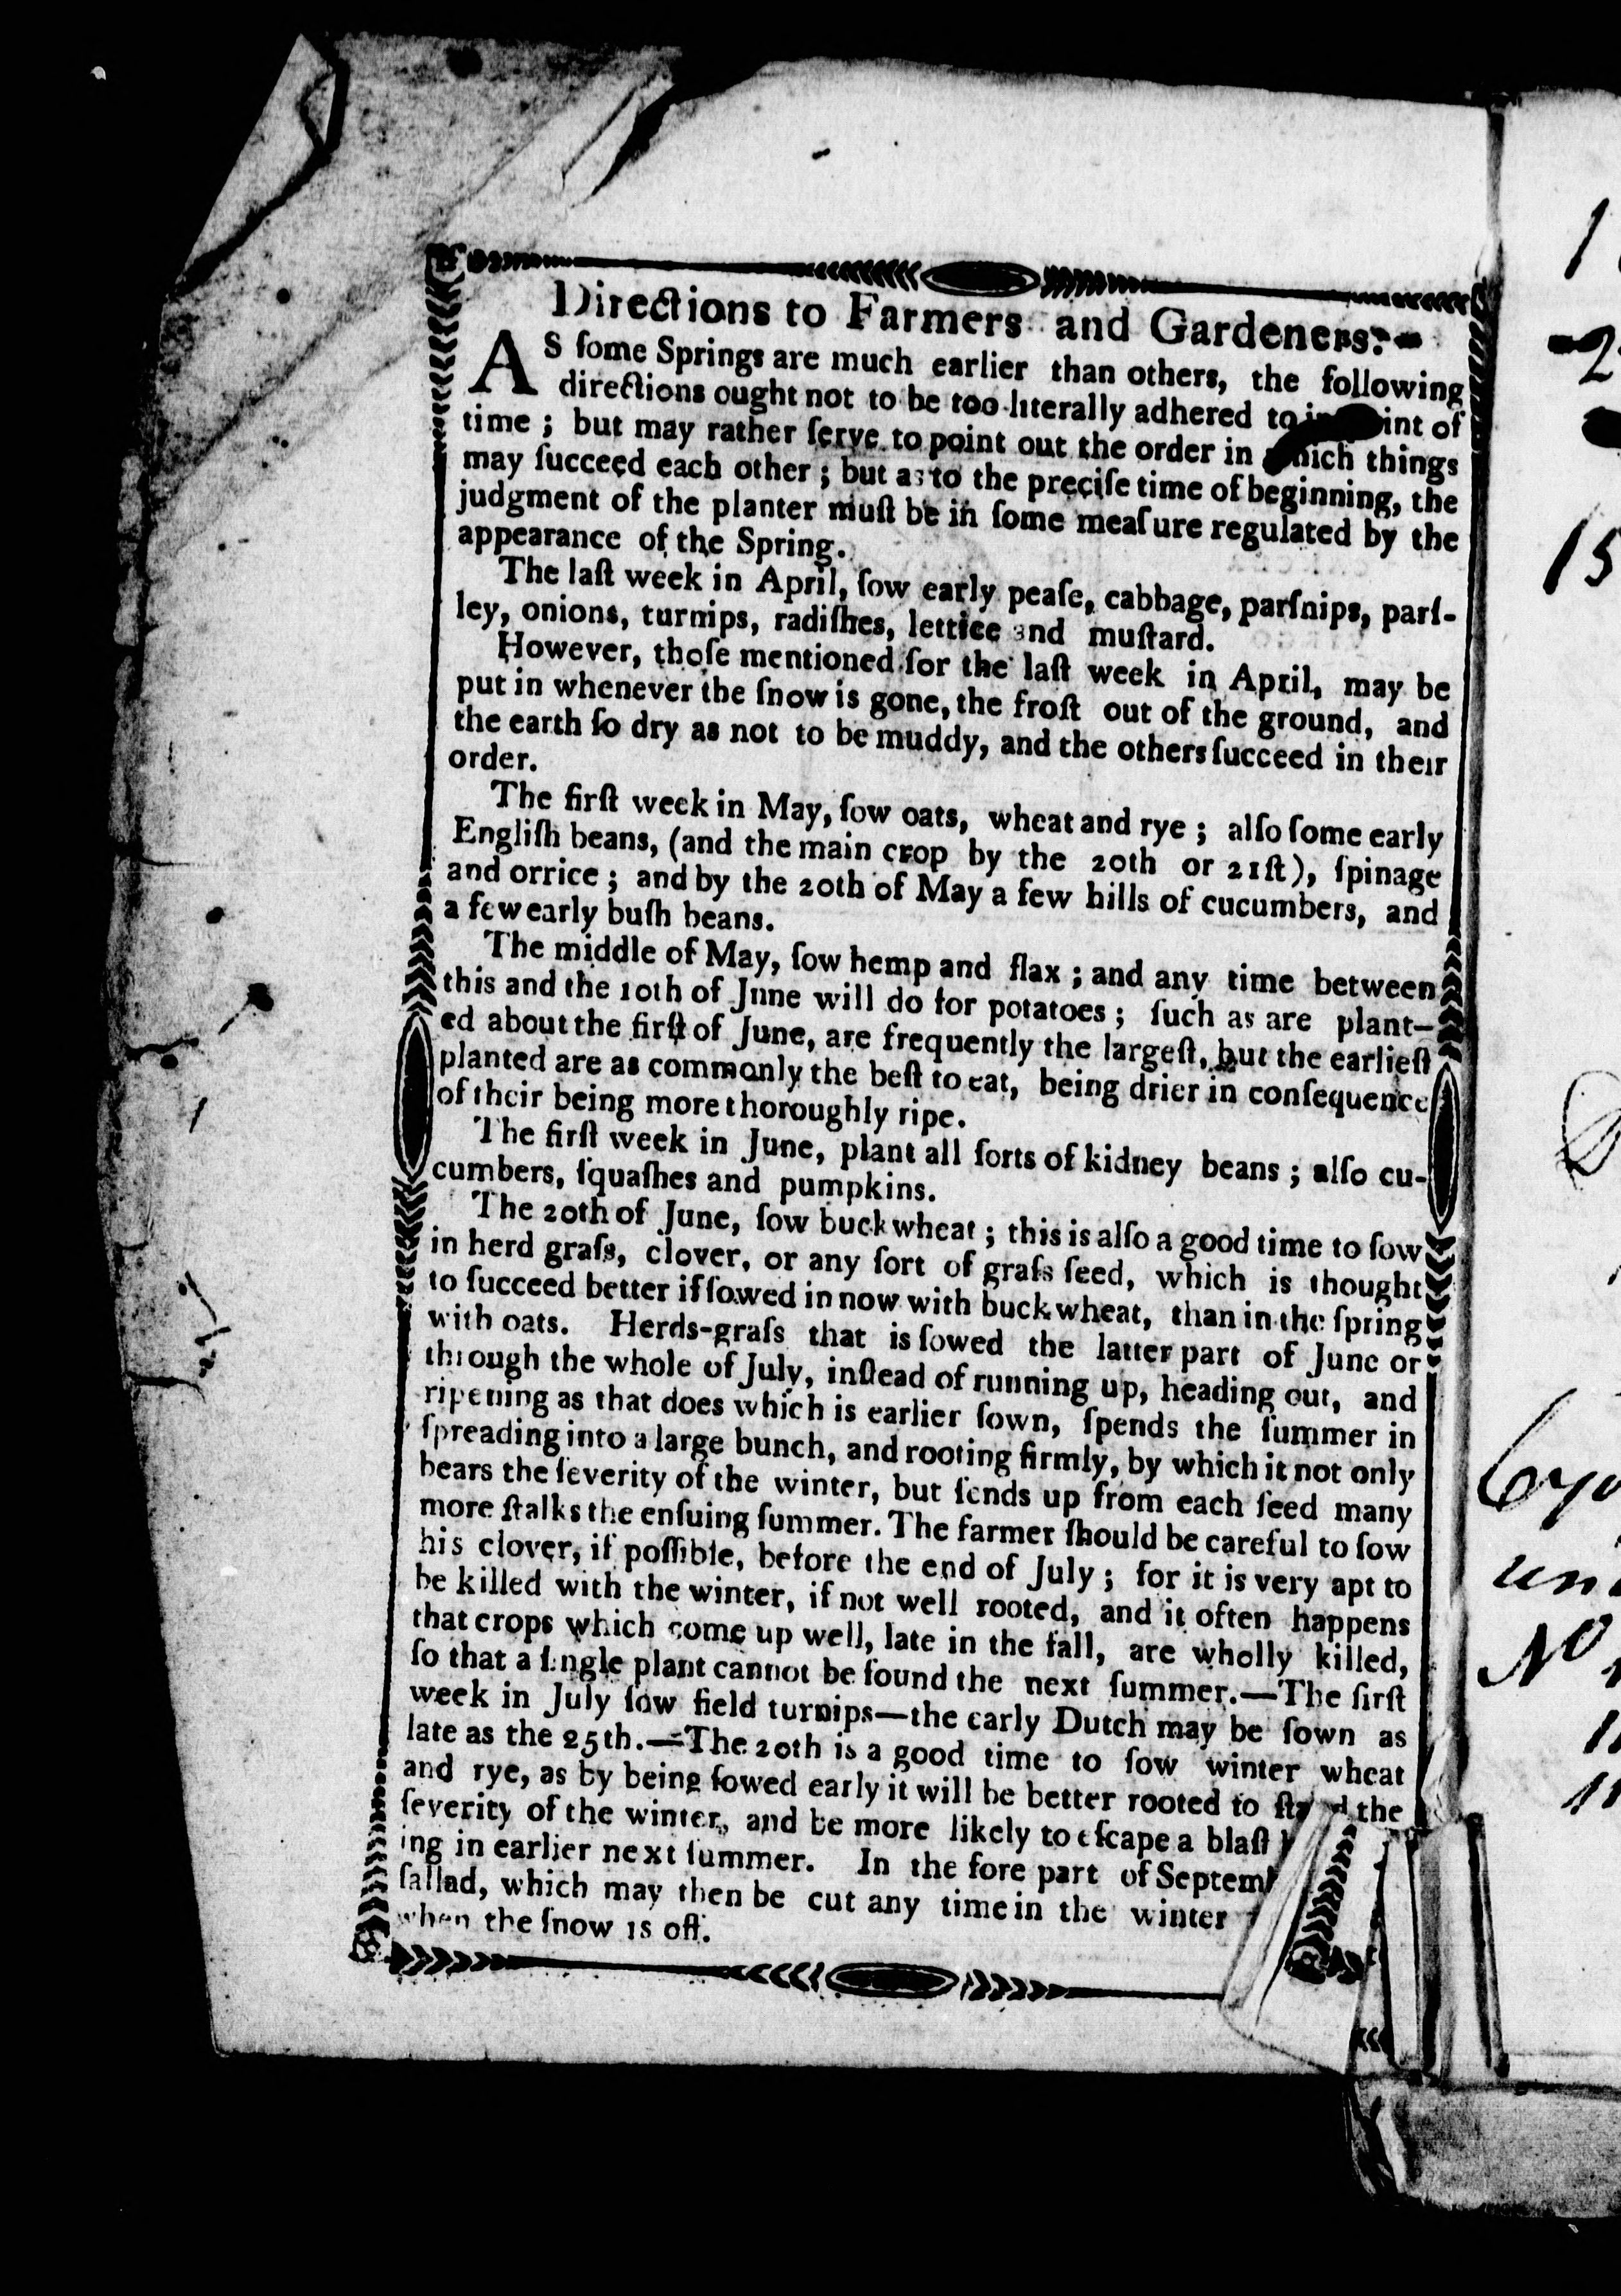 Directions to Farmers and Gardeners.
AS ſome Springs are much earlier than others, the following
directions ought not to be too literally adhered to in point of
time ; but may rather ſerve to point out the order in which things
may ſucceed each other ; but as to the preciſe time of beginning, the
judgment of the planter muſt be in ſome meaſure regulated by the
appearance of the Spring.
The laſt week in April, ſow early peaſe, cabbage, parſnips, parſ-
ley, onions, turnips, radiſhes, lettice and muſtard.
However, thoſe mentioned for the laſt week in April, may be
put in whenever the ſnow is gone, the froſt out of the ground, and
the earth ſo dry as not to be muddy, and the others ſucceed in their
order.
The firſt week in May, ſow oats, wheat and rye ; alſo ſome early
Engliſh beans, (and the main crop by the 20th or 21ſt), ſpinage
and orrice ; and by the 20th of May a few hills of cucumbers, and
a few early buſh beans.
The middle of May, ſow hemp and flax ; and any time between
this and the 10th of June will do for potatoes ; ſuch as are plant-
ed about the firſt of June, are frequently the largeſt, but the earlieſt
planted are as commonly the beſt to eat, being drier in conſequence
of their being more thoroughly ripe.
The firſt week in June, plant all ſorts of kidney beans ; alſo cu-
cumbers, ſquaſhes and pumpkins.
The 20th of June, ſow buckwheat ; this is alſo a good time to ſow
in herd graſs, clover, or any ſort of graſs ſeed, which is thought
to ſucceed better if ſowed in now with buckwheat, than in the ſpring
with oats. Herds-graſs that is ſowed the latter part of June or
through the whole of July, inſtead of running up, heading out, and
ripening as that does which is earlier ſown, ſpends the ſummer in
ſpreading into a large bunch, and rooting firmly, by which it not only
bears the ſeverity of the winter, but ſends up from each ſeed many
more ſtalks the enſuing ſummer. The farmer ſhould be careful to ſow
his clover, if poſſible, before the end of July ; for it is very apt to
be killed with the winter, if not well rooted, and it often happens
that crops which come up well, late in the fall, are wholly killed,
ſo that a ſingle plant cannot be found the next ſummer.—The firſt
week in July ſow field turnips—the early Dutch may be ſown as
late as the 25th.—The 20th is a good time to ſow winter wheat
and rye, as by being ſowed early it will be better rooted to ſtand the
ſeverity of the winter, and be more likely to eſcape a blaſt
ing in earlier next ſummer. In the fore part of Septem
ſallad, which may then be cut any time in the winter
when the ſnow is off.
1
2
15
un
No
11
11